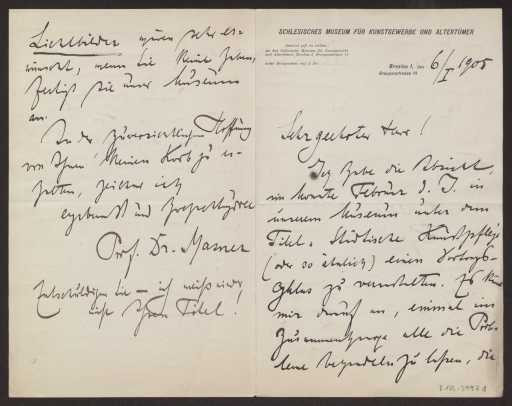 SCHLESISCHES MUSEUM FÜR KUNSTGEWERBE UND ALTERTÜMER
Breslau I, den 6/I 1905
Graupenstrasse 14
Sehr geehrter Herr!
Ich habe die Absicht,
im Monate Februar d. J. in
unserem Museum unter dem
Titel: Städtische Kunstpflege
(oder so ähnlich) einen Vortrags-
zyklus zu veranstalten. Es käme
mir darauf an, einmal im
Zusammenhange alle die Prob-
leme behandeln zu lassen, die
Lichtbilder wären sehr er-
wünscht, wenn Sie keine haben,
fertigt sie unser Museum
an.
In der zuversichtlichen Hoffnung
von Ihnen keinen Korb zu er-
halten, zeichne ich
ergebenst und hochachtungsvoll
Prof. Dr. Masner
Entschuldigen Sie – ich weiß nicht
Ihren Titel!